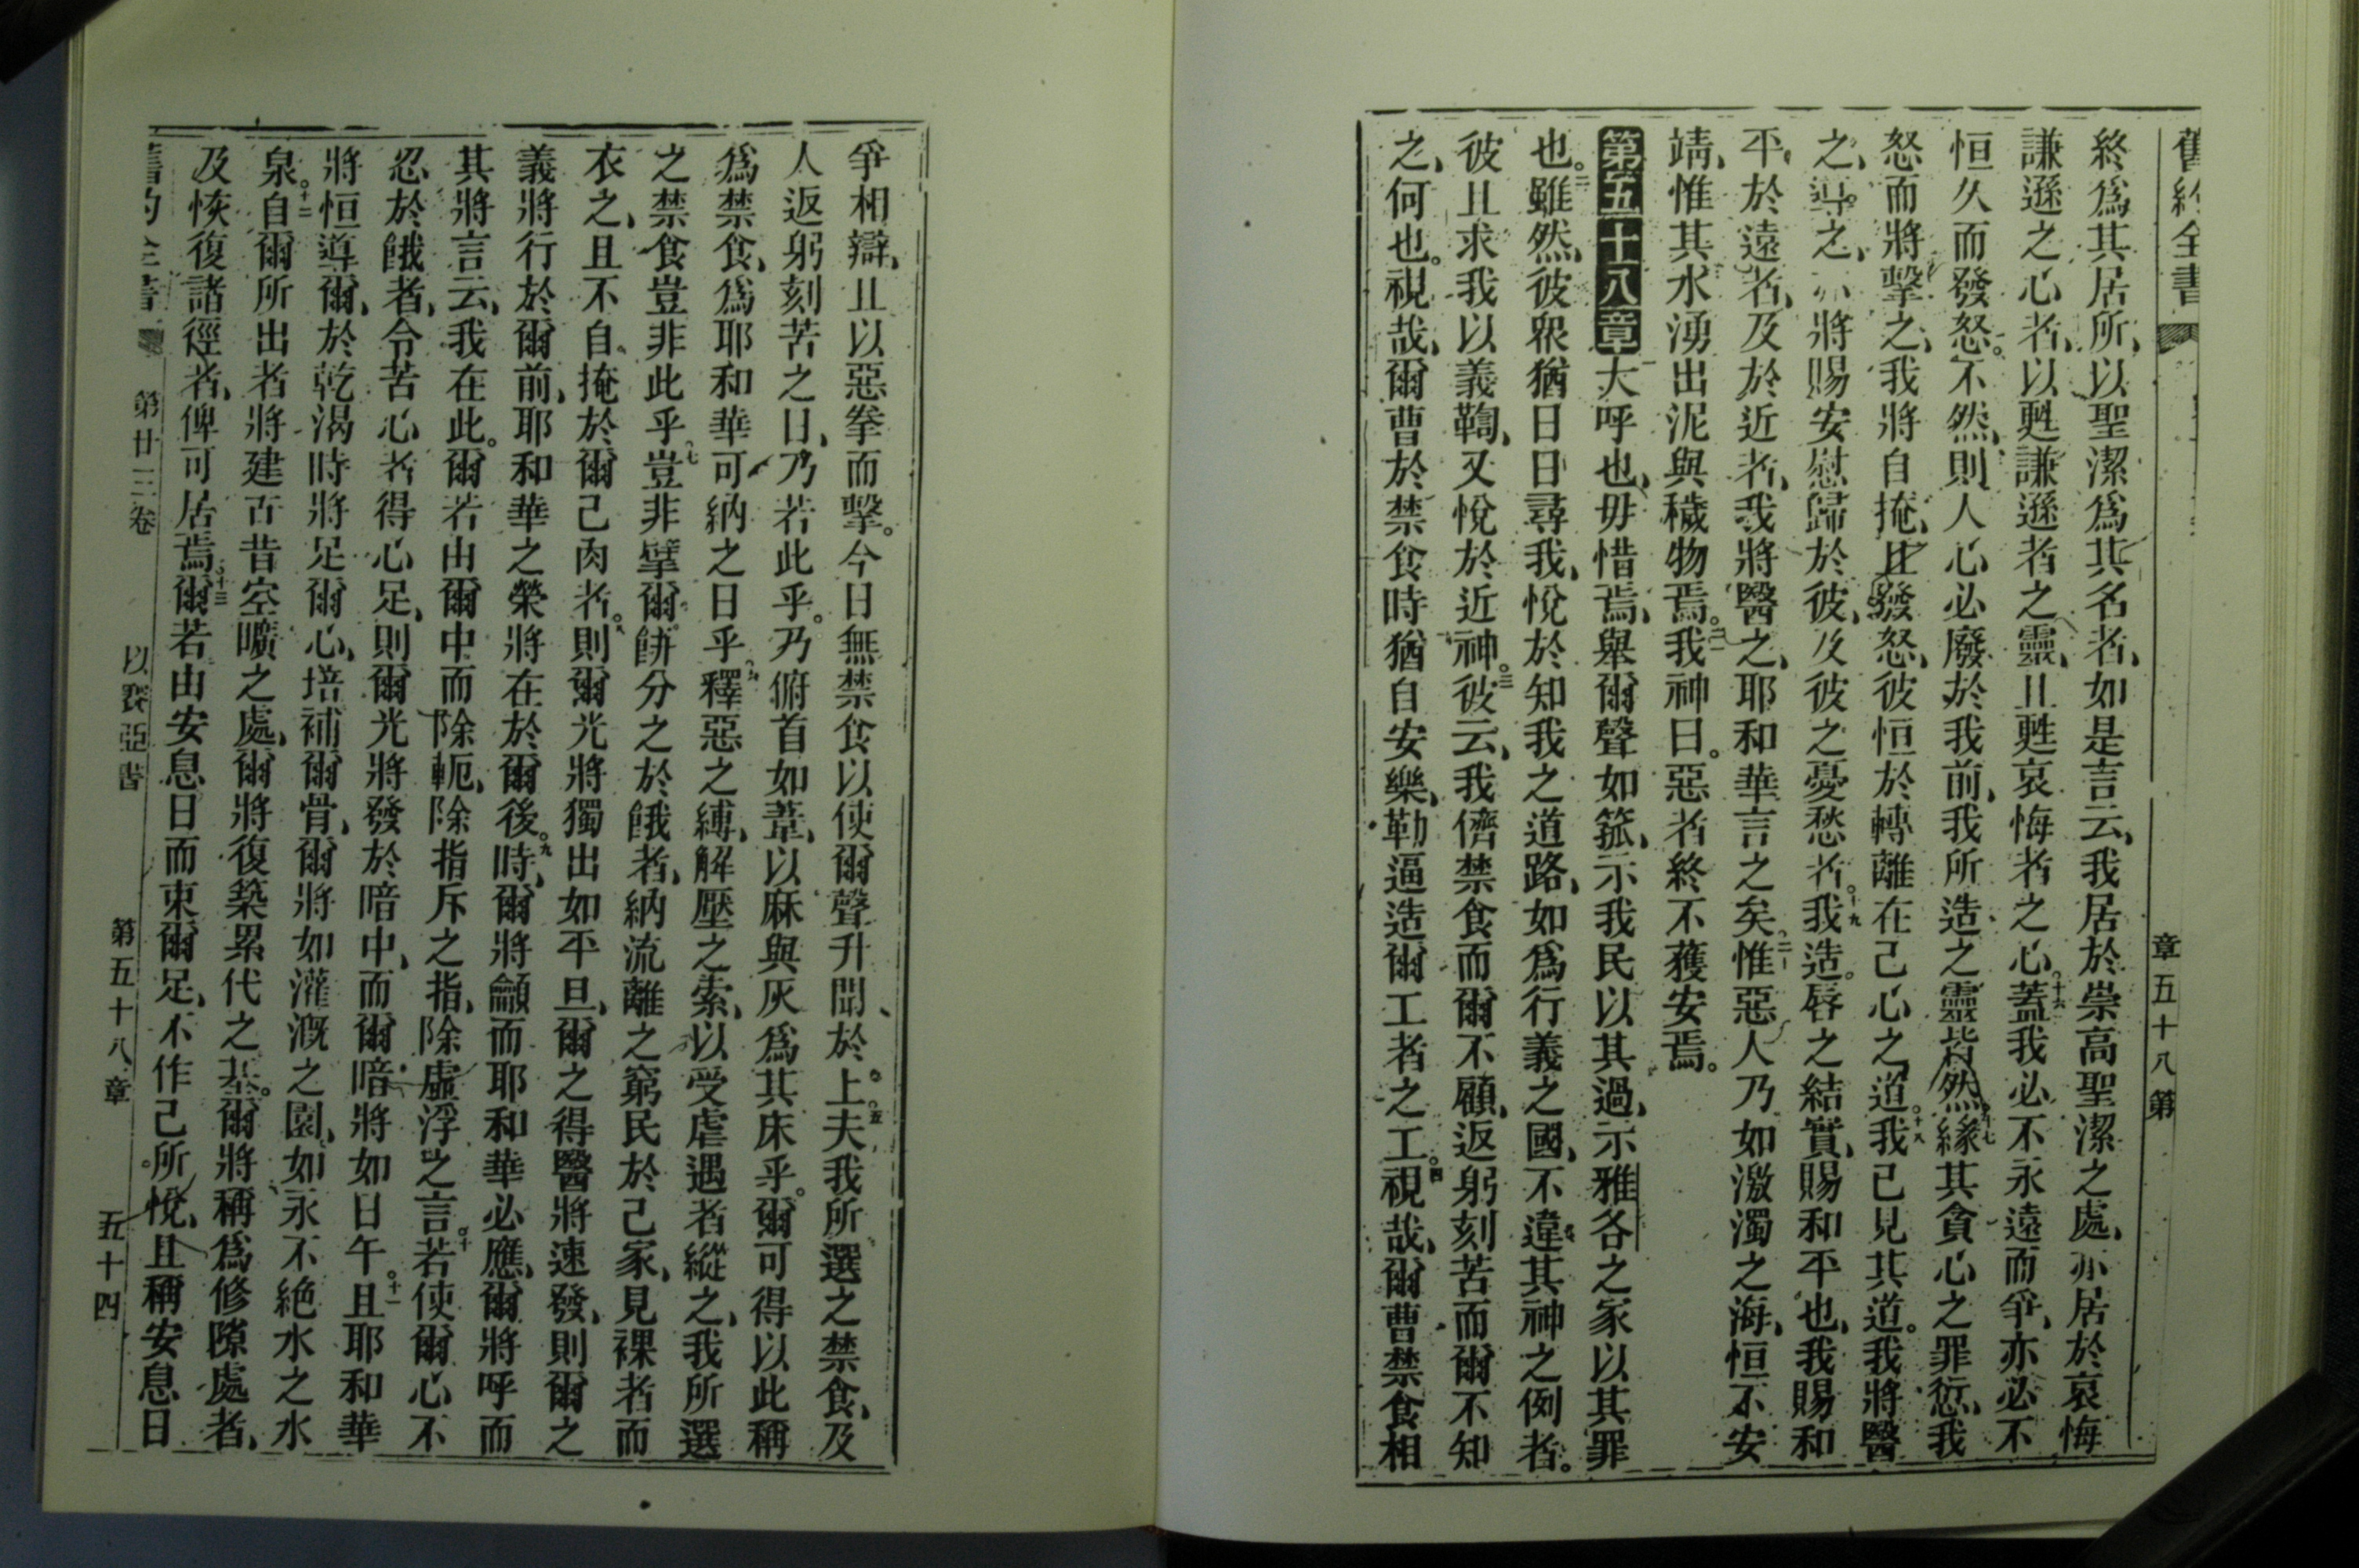 終爲其居所、以聖潔爲其名者、如是言云、我居於崇高聖潔之處、亦居於哀悔
謙遜之心者、以甦謙遜者之靈、且甦哀悔者之心。十六蓋我必不永遠而爭、亦必不
恒久而發怒。不然、則人心必廢於我前、我所造之靈皆然。十七緣其貪心之罪愆、我
怒而將擊之、我將自掩、且發怒、彼恒於轉離在己心之道。十八我已見其道。我將醫
之、導之、亦將賜安慰歸於彼、及彼之憂愁者。十九我造唇之結實、賜和平也、我賜和
平、於遠者、及於近者、我將醫之、耶和華言之矣。二十惟惡人乃如激濁之海、恒不安
靖、惟其水湧出泥與穢物焉。二一我神曰。惡者終不獲安焉。
第五十八章 大呼也、毋惜焉、舉爾聲如箛、示我民以其過、示雅各之家以其罪
也。二雖然、彼衆猶日日尋我、悅於知我之道路、如爲行義之國、不違其神之例者。
彼且求我以義鞫、又悅於近神。三彼云、我儕禁食而爾不顧、返躬刻苦而爾不知
之、何也。視哉、爾曹於禁食時猶自安樂、勒逼造爾工者之工。四視哉、爾曹禁食相
章五十八第
爭相辯、且以惡拳而擊。今日無禁食以使爾聲升聞於上。五夫我所選之禁食、及
人返躬刻苦之日、乃若此乎。乃俯首如葦、以麻與灰爲其床乎。爾可得以此稱
爲禁食、爲耶和華可納之日乎。六釋惡之縛、解壓之索、以受虐遇者縱之、我所選
之禁食豈非此乎。七豈非擘爾餅分之於餓者、納流離之窮民於己家、見裸者而
衣之、且不自掩於爾己肉者。八則爾光將獨出如平旦、爾之得醫將速發、則爾之
義將行於爾前、耶和華之榮將在於爾後。九時、爾將籲而耶和華必應、爾將呼而
其將言云、我在此。爾若由爾中而除軛、除指斥之指、除虛浮之言。十若使爾心不
忍於餓者、令苦心者得心足、則爾光將發於暗中、而爾暗將如日午。十一且耶和華
將恒導爾、於乾渴時將足爾心、培補爾骨、爾將如灌溉之園、如永不絕水之水
泉。十二自爾所出者將建古昔空曠之處、爾將復築累代之基。爾將稱爲修隙處者、
及恢復諸徑者、俾可居焉。十三爾若由安息日而束爾足、不作己所悅、且稱安息日
第廿三卷 以賽亞書 第五十八章 五十四